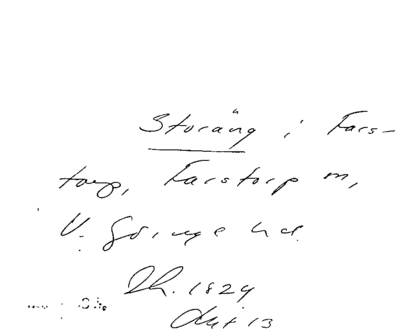 Storäng i Fars-
torp, Farstorp sn,
V. Göinge hd.
Lh. 1824
Akt 13